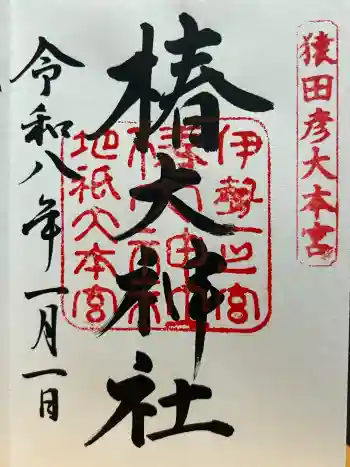 猿田彦大本宮
伊勢一之宮
椿大神社
地祇大本宮
椿大神社
令和八年一月一日